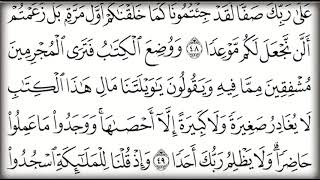 عَلَىٰ رَبِّكَ صَفًّا لَّقَدْ جِئْتُمُونَا كَمَا خَلَقْنَٰكُمْ أَوَّلَ مَرَّةٍۭ بَلْ زَعَمْتُمْ
أَلَّن نَّجْعَلَ لَكُم مَّوْعِدًا ٤٨ وَوُضِعَ ٱلْكِتَٰبُ فَتَرَى ٱلْمُجْرِمِينَ
مُشْفِقِينَ مِمَّا فِيهِ وَيَقُولُونَ يَٰوَيْلَتَنَا مَالِ هَٰذَا ٱلْكِتَٰبِ
لَا يُغَادِرُ صَغِيرَةً وَلَا كَبِيرَةً إِلَّآ أَحْصَىٰهَا وَوَجَدُوا۟ مَا عَمِلُوا۟
حَاضِرًا وَلَا يَظْلِمُ رَبُّكَ أَحَدًا ٤٩ وَإِذْ قُلْنَا لِلْمَلَٰٓئِكَةِ ٱسْجُدُوا۟